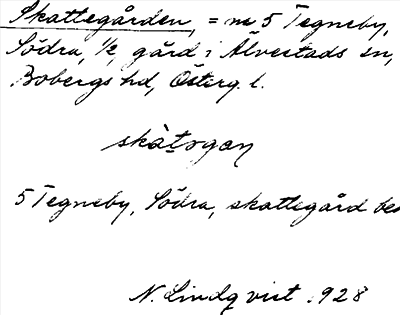 Skattegården, = nr 5 Tegneby,
Södra, 1/2, gård i Älvestads sn,
Bobergs hd, Österg. l.
skàtsgaṇ
5 Tegneby, Södra, skattegård bes
N. Lindqvist 1928